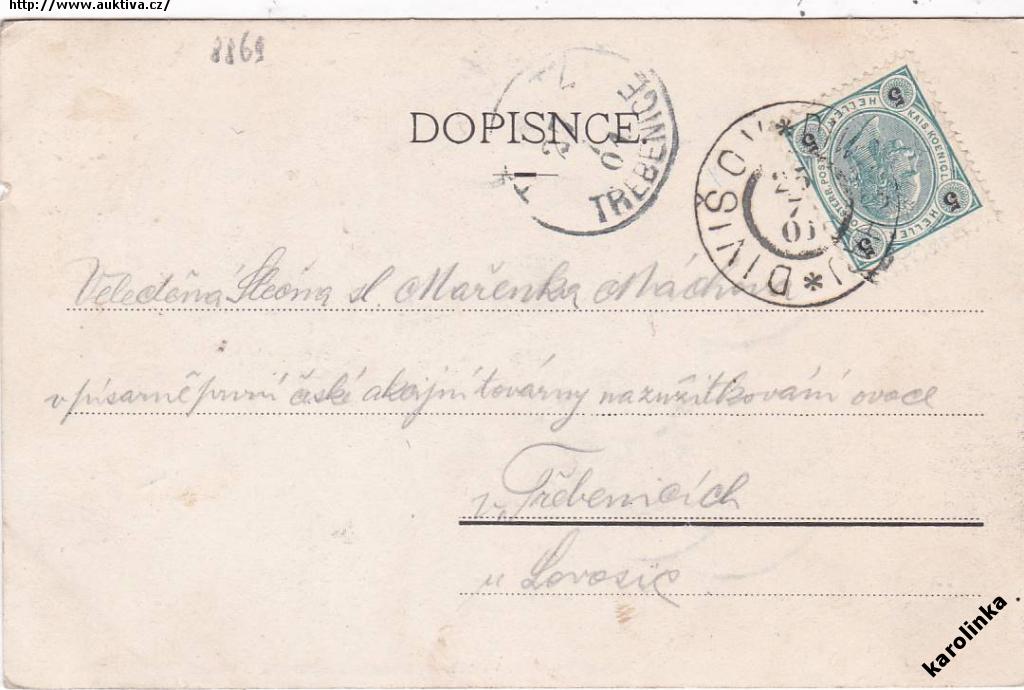 http://www.auktiva.cz/
8869
DOPISNCE.
TŘEBENICE
DIVIŠOV
5 HELLER
KAIS. KOENIGL.
Velectěná Slečna sl. Mařenka Máchova
v písarně první české akcijní továrny na zužitkování ovoce
v Třebenicích
u Lovosic
karolinka